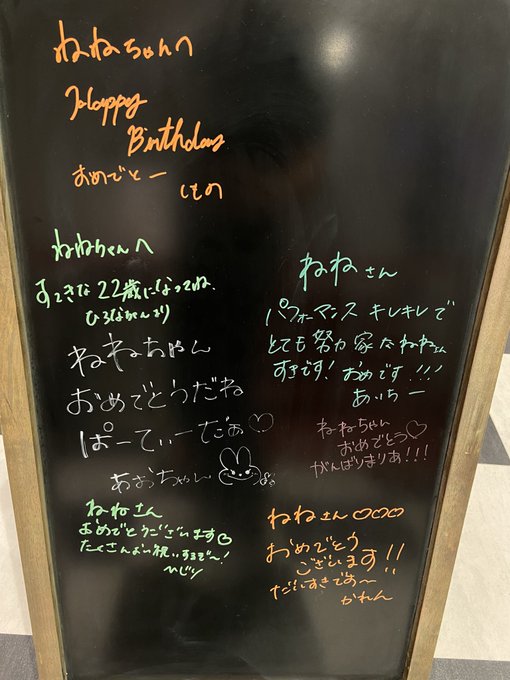 ねねちゃんへ
Happy
Birthday
おめでとー
しもの
ねねちゃんへ
すてきな22歳になってね、
ひろながんより
ねねちゃん
おめでとうだね
ぱーてぃーだぁ♡
あおちゃん
ねねさん
おめでとうございます♡
たくさんお祝いするぞ〜!
ひじり
ねねさん
パフォーマンスキレキレで
とても努力家なねねさん
すきです! おめです!!!
あいちー
ねねちゃん
おめでとう♡
がんばりまりあ!!!
ねねさん♡♡♡
おめでとう
ございます!!
だいすきです〜
かれん